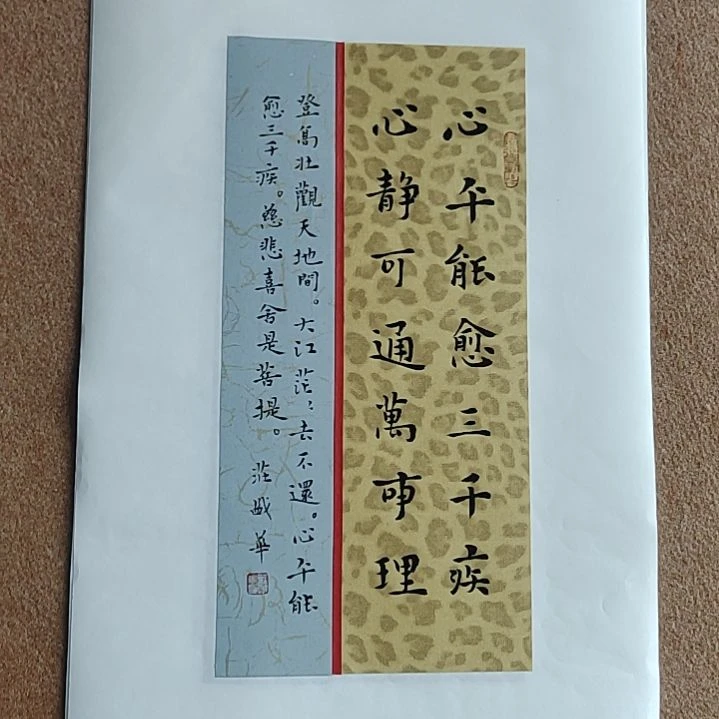 心平能愈三千疾
心静可通萬事理
登高壯觀天地間。大江茫々去不還。心平能
愈三千疾。慈悲喜舍是菩提。
莊盛華